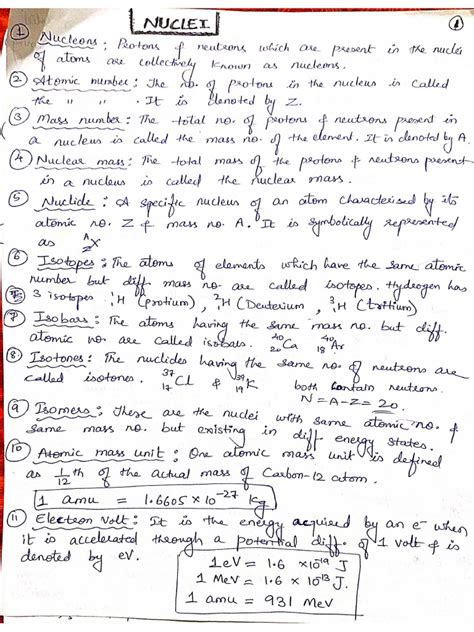 NUCLEI
1
① Nucleons : Protons & neutrons which are present in the nuclei
of atoms are collectively known as nucleons.
② Atomic number : The no. of protons in the nucleus is called
the " " . It is denoted by Z.
③ Mass number : The total no. of protons & neutrons present in
a nucleus is called the mass no. of the element. It is denoted by A.
④ Nuclear mass : The total mass of the protons & neutrons present
in a nucleus is called the nuclear mass.
⑤ Nuclide : A specific nucleus of an atom characterised by its
atomic no. Z & mass no. A. It is symbolically represented
as ᴬ_Z X
⑥ Isotopes : The atoms of elements which have the same atomic
number but diff. mass no. are called isotopes. Hydrogen has
3 isotopes ¹₁H (protium), ²₁H (Deuterium, ³₁H (tritium)
⑦ Isobars : The atoms having the same mass no. but diff.
atomic no. are called isobars. ⁴⁰₂₀Ca ⁴⁰₁₈Ar
⑧ Isotones : The nuclides having the same no. of neutrons are
called isotones. ³⁷₁₇Cl & ³⁹₁₉K both contain neutrons.
N = A-Z = 20.
⑨ Isomers : These are the nuclei with same atomic no. &
same mass no. but existing in diff energy states.
⑩ Atomic mass unit : One atomic mass unit is defined
as 1/12 th of the actual mass of Carbon-12 atom.
1 amu = 1.6605 × 10⁻²⁷ kg
⑪ Electron Volt : It is the energy acquired by an e⁻ when
it is accelerated through a potential diff. of 1 volt & is
denoted by eV.
1 eV = 1.6 × 10⁻¹⁹ J
1 MeV = 1.6 × 10⁻¹³ J.
1 amu = 931 MeV